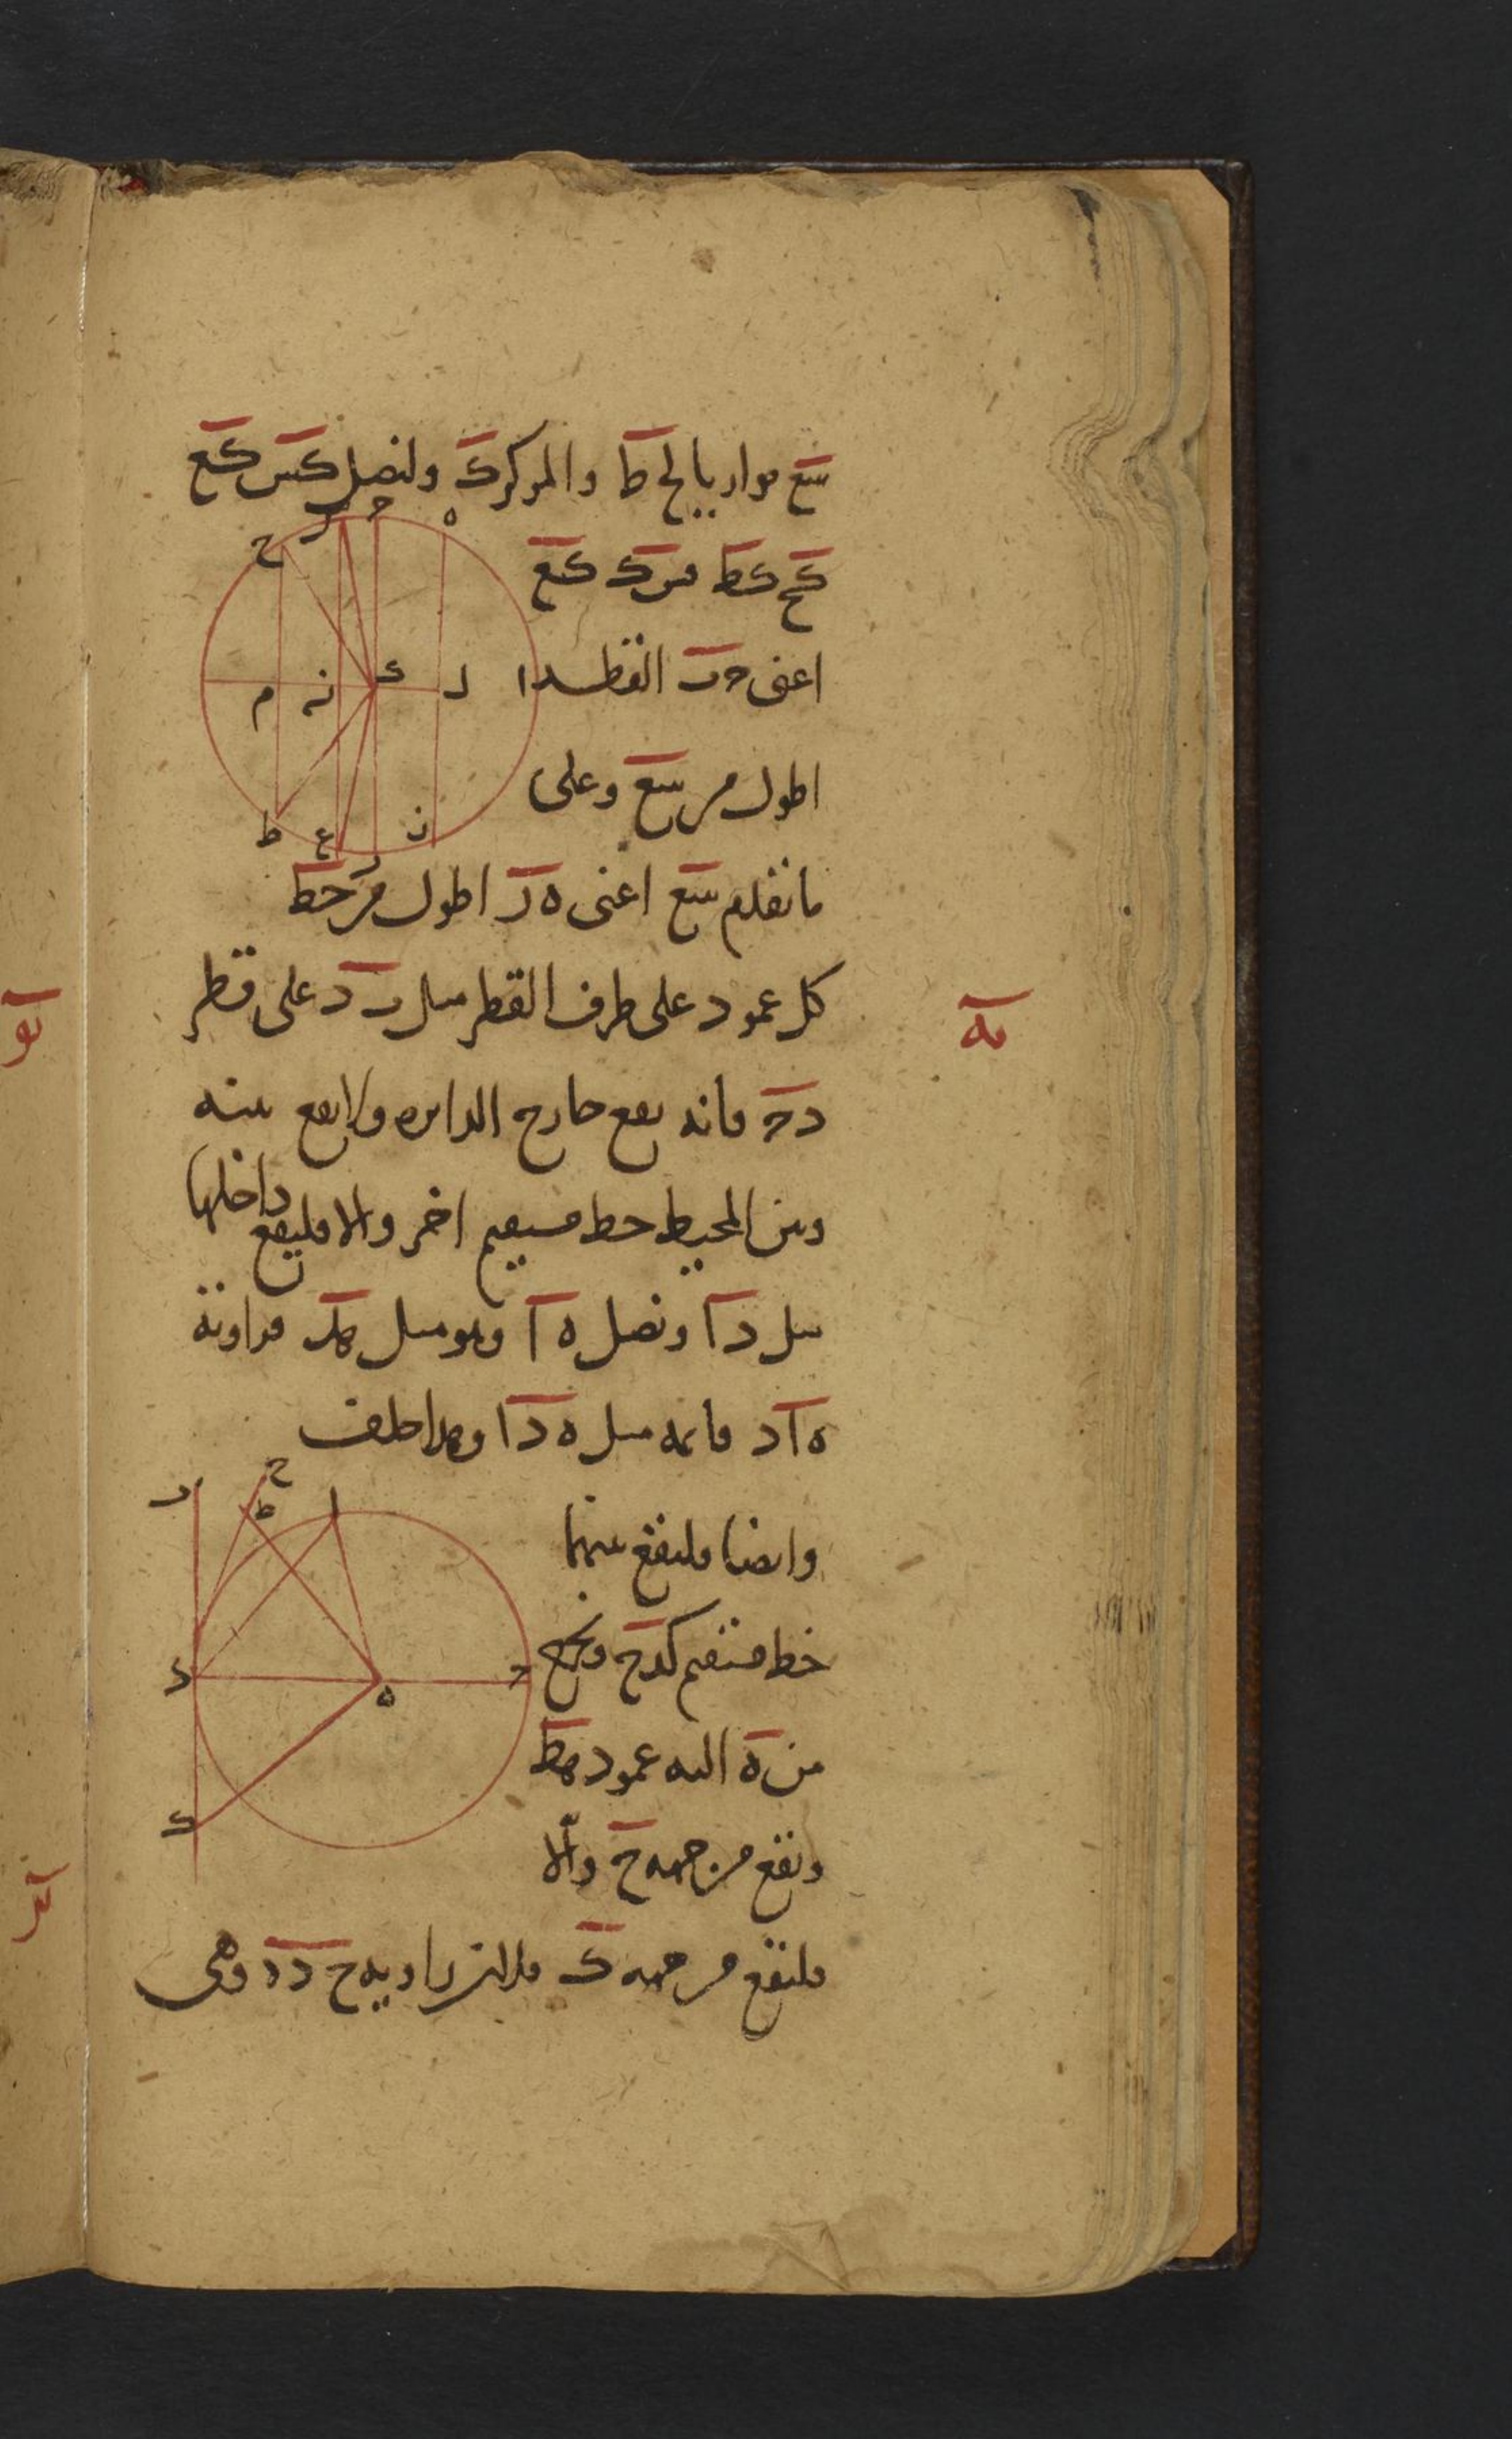 سع موازيا لح ط والمركز ك ولنصل كس كع
كح كط فس ك كع
اعنى حد القطر
اطول من سع وعلى
ما تقدم سع اعنى ه ز اطول من حط
كل عمود على طرف القطر مثل ر د على قطر
د ح فانه يقع خارج الدايره ولا يقع بينه
وبين المحيط خط مستقيم اخر والا فليقع داخلها
مثل د ا ونصل ه ا وهو مثل هد فزاوية
ه ا د قائمه مثل ه د ا وهذا خلف
وايضا فليقع بينهما
خط مستقيم كدح ونخرج
من ه اليه عمود هط
ويقع من جهه ح والا
فليقع من جهه ك فلان زاويه ح د ه وهى
مه
ح
س
ح
ه
م
ن
ك
ل
ا
ط
ع
ز
د
ر
ح
ط
ا
د
ه
ح
ك